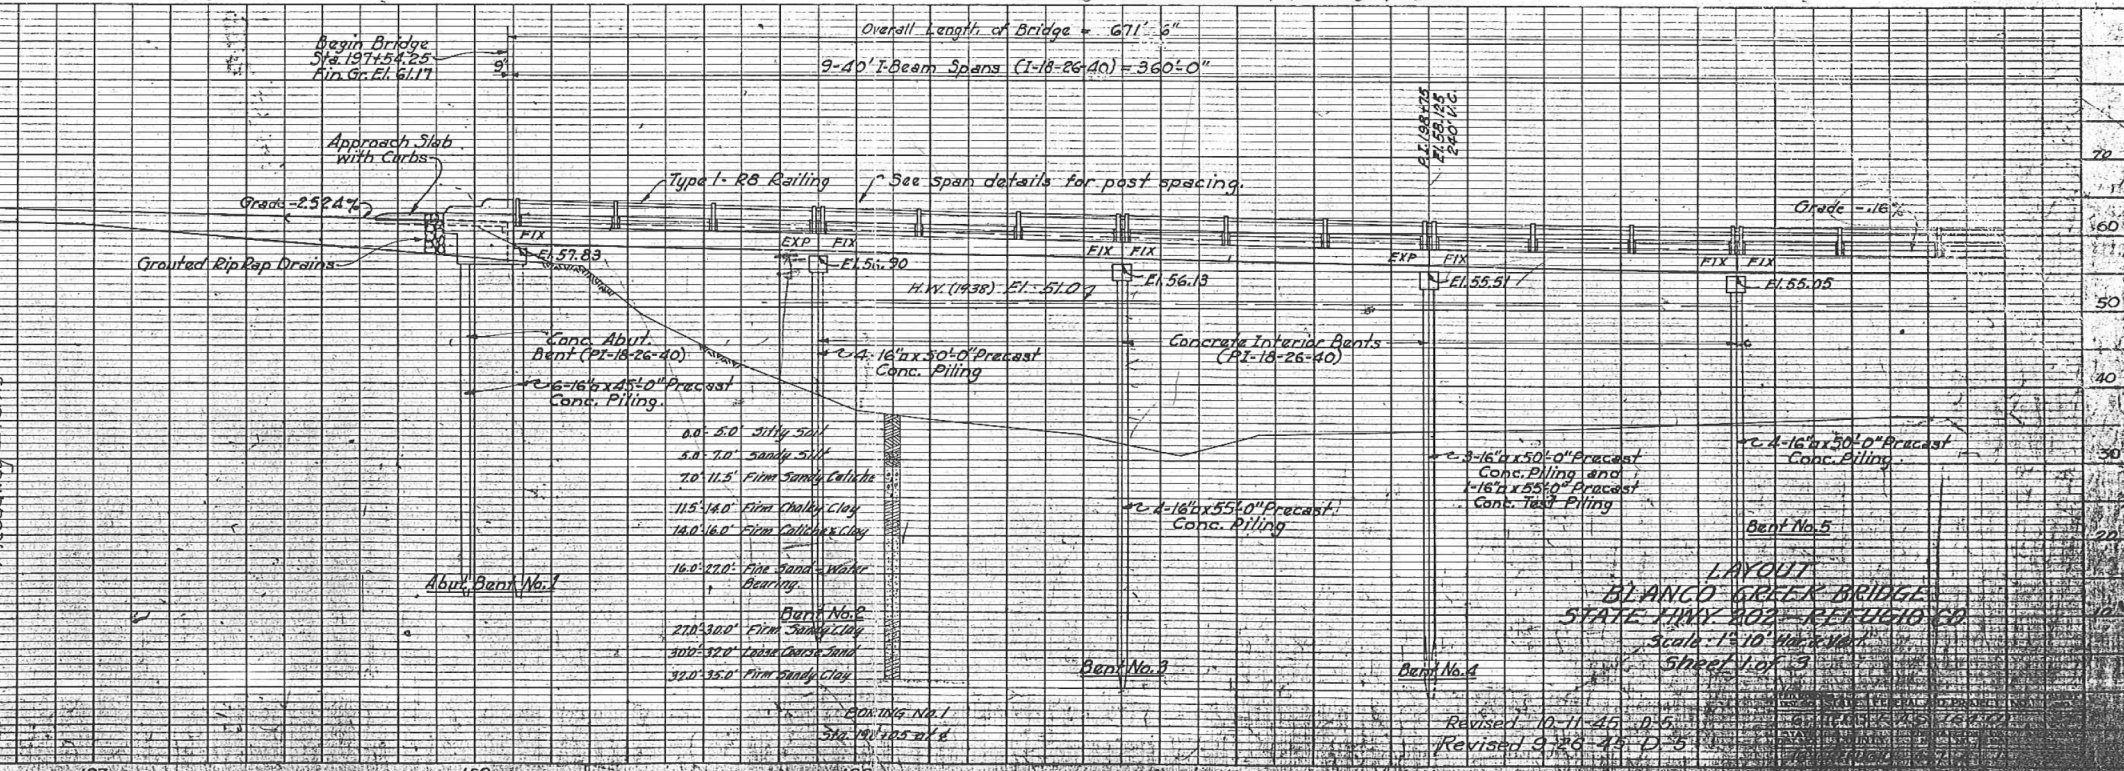 Overall Length of Bridge = 671'-6"
Begin Bridge
Sta. 197+54.25
Fin. Gr. El. 61.17
9'
9-40' I-Beam Spans (I-18-26-40) = 360'-0"
P.I. 198+75
El. 58.125
240' V.C.
Approach Slab
with Curbs
Type I-R8 Railing
See span details for post spacing.
Grade -2.524%
Grade -.16%
Grouted Rip Rap Drains
FIX
EXP FIX
FIX FIX
EXP FIX
FIX FIX
El. 57.83
El. 56.90
El. 56.13
El. 55.51
El. 55.05
H.W. (1938) El. 51.0
70
60
50
40
30
20
Conc. Abut.
Bent (PI-18-26-40)
6-16"□x45'-0" Precast
Conc. Piling.
4-16"□x50'-0" Precast
Conc. Piling
Concrete Interior Bents
(PI-18-26-40)
4-16"□x55'-0" Precast
Conc. Piling
3-16"□x50'-0" Precast
Conc. Piling and
1-16"□x55'-0" Precast
Conc. Test Piling
4-16"□x50'-0" Precast
Conc. Piling
0.0'-5.0' Silty Soil
5.0'-7.0' Sandy Silt
7.0'-11.5' Firm Sandy Caliche
11.5'-14.0' Firm Chalky Clay
14.0'-16.0' Firm Caliche & Clay
16.0'-27.0' Fine Sand-Water
Bearing.
27.0'-30.0' Firm Sandy Clay
30.0'-32.0' Loose Coarse Sand
32.0'-35.0' Firm Sandy Clay
BORING No. 1
Abut. Bent No. 1
Bent No. 2
Bent No. 3
Bent No. 4
Bent No. 5
LAYOUT
BLANCO CREEK BRIDGE
STATE HWY. 202-REFUGIO CO
Scale: 1"=10' Hor. & Vert.
Sheet 1 of 3
Revised 10-11-45 D-5
Revised 9-26-45 D-5